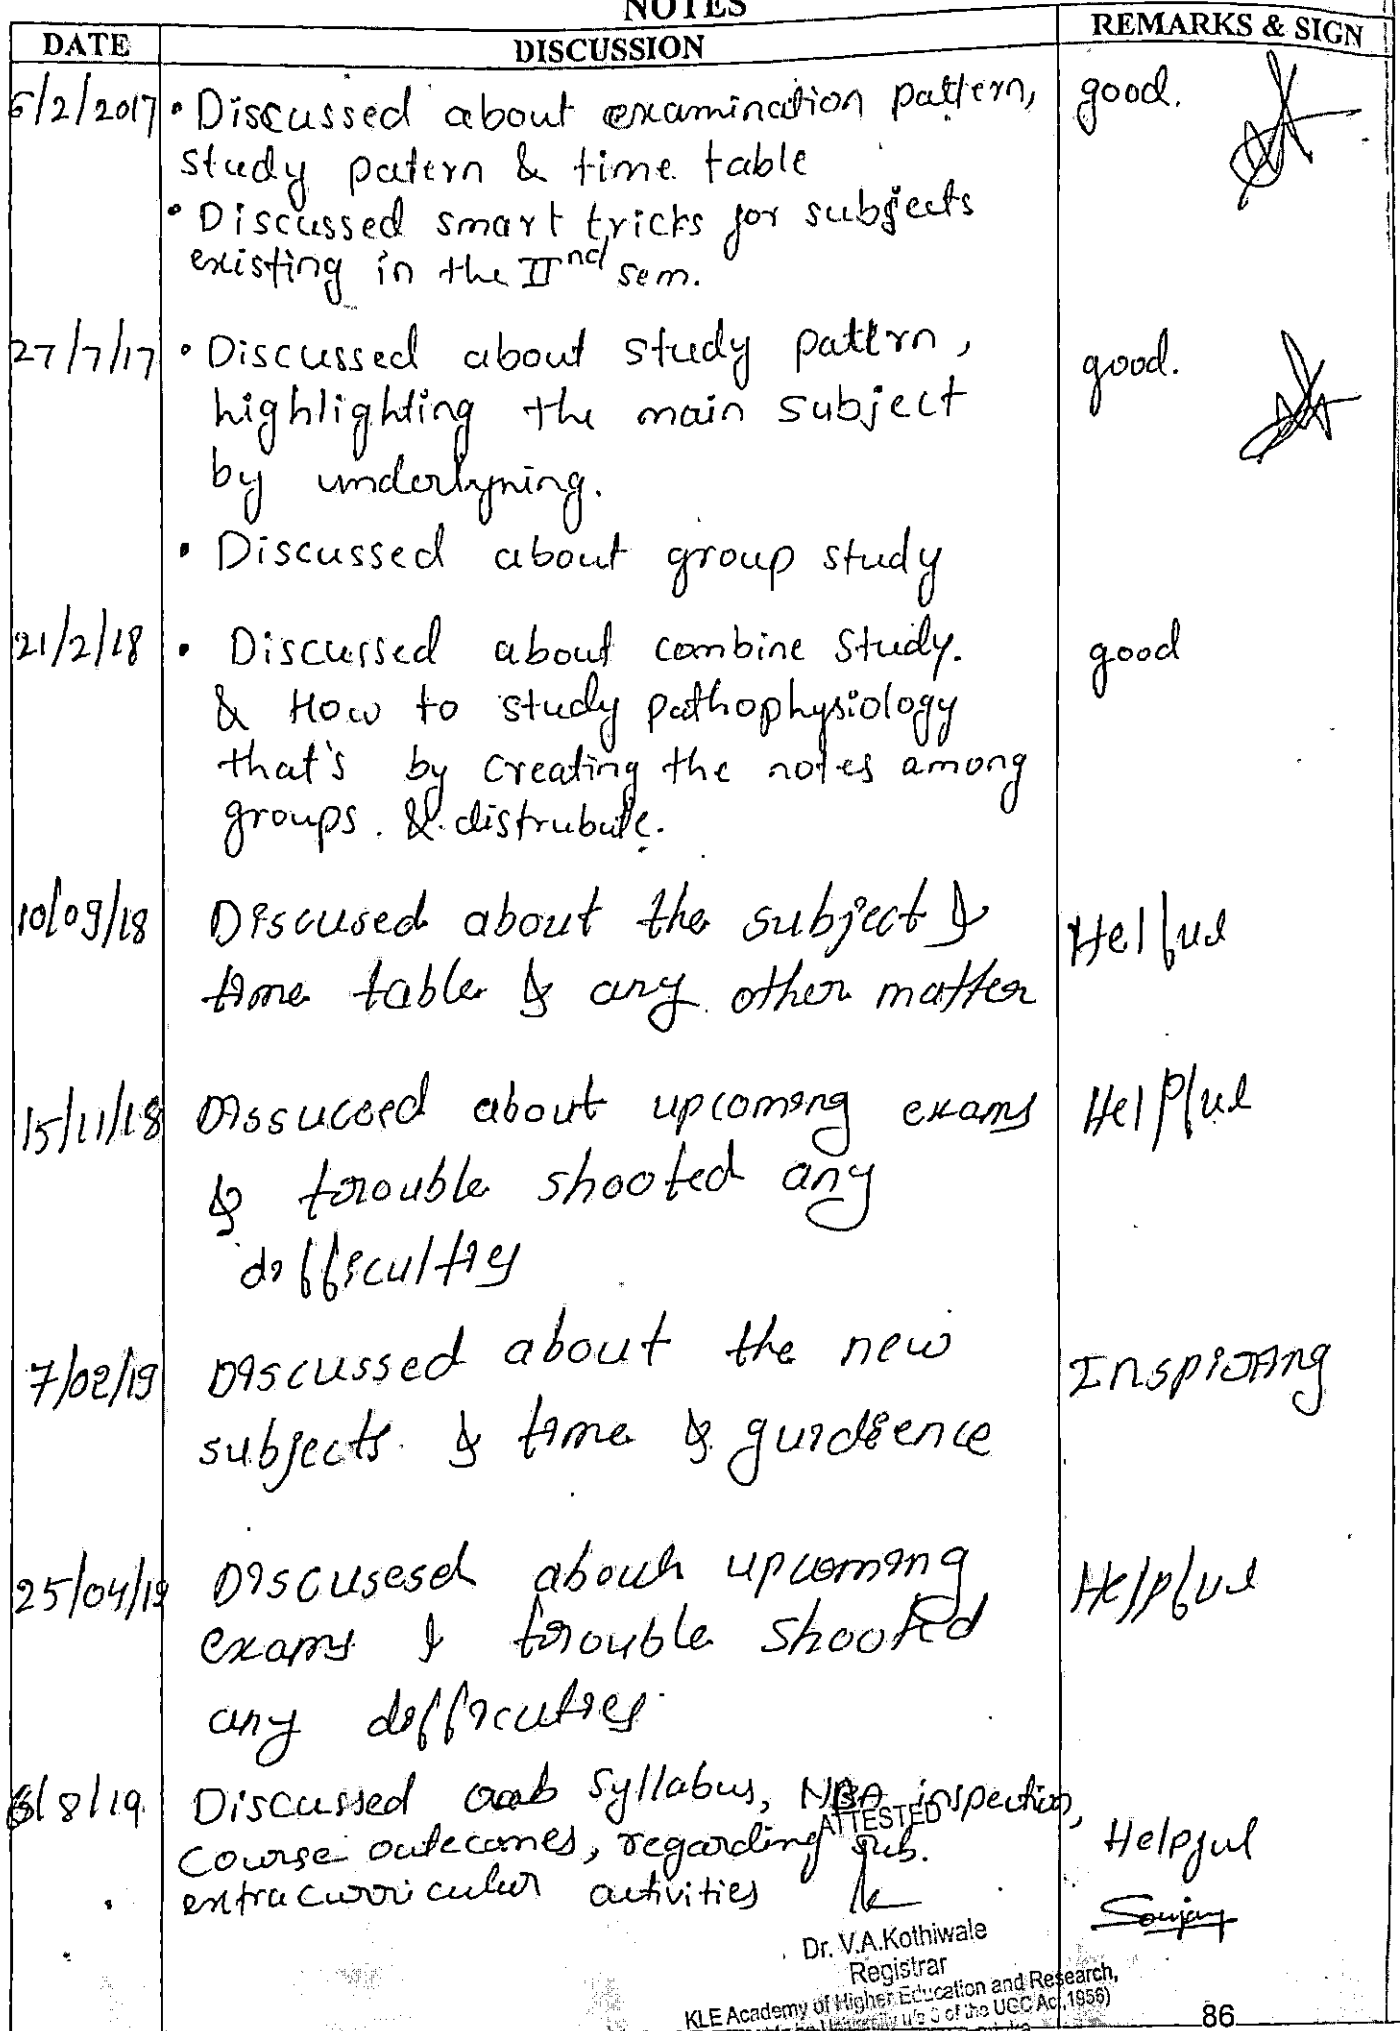 NOTES
DATE DISCUSSION REMARKS & SIGN
6/2/2017 • Discussed about examination pattern, good.
study patern & time table
• Discussed smart tricks for subjects
existing in the IInd sem.
27/7/17 • Discussed about study pattrn, good.
highlighting the main subject
by underlyning.
• Discussed about group study
21/2/18 • Discussed about combine study. good
& How to study pathophysiology
that's by creating the notes among
groups. & distrubute.
10/09/18 Discused about the subject & Helful
time table & any other matter
15/11/18 Dissuced about upcoming exams Helpful
& trouble shooted any
difficulties
7/02/19 Discussed about the new Inspiring
subjects & time & guidience
25/04/19 Discusesd about upcoming Helpful
exams & trouble shooted
any difficuties
6/8/19 Discussed syllabus, NBA inspection,
ATTESTED
Course outecomes, regarding sub. Helpful
extracurricular activities
Dr. V.A.Kothiwale
Registrar
KLE Academy of Higher Education and Research,
University u/s 3 of the UGC Act, 1956)
86